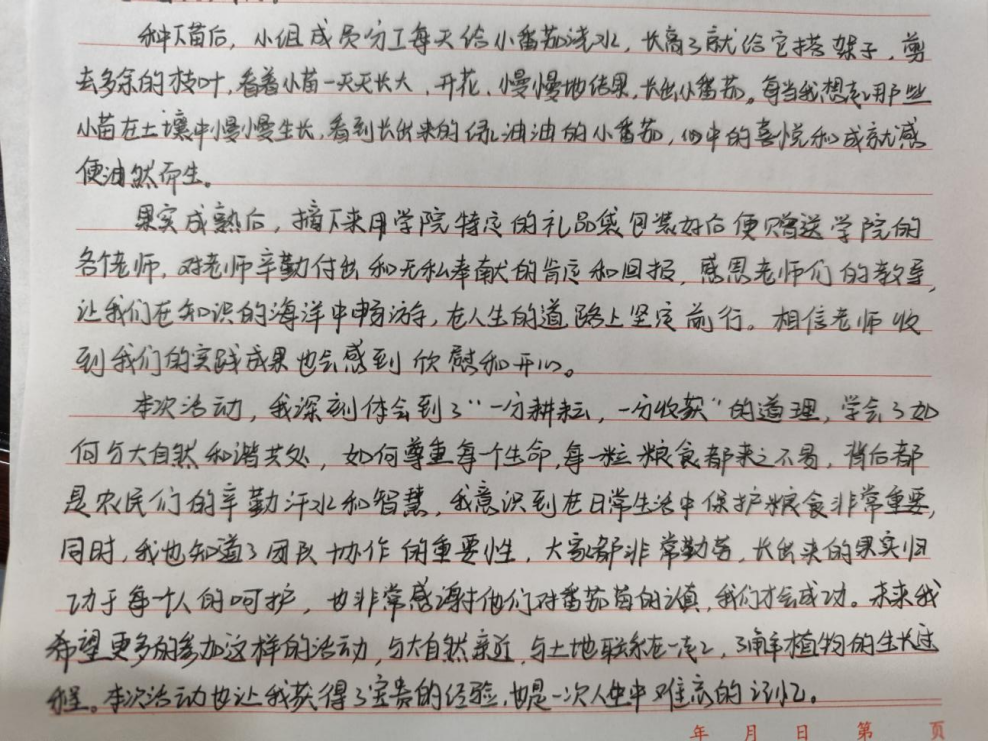 种下苗后，小组成员分工每天给小番茄浇水，长高了就给它搭架子，剪
去多余的枝叶，看着小苗一天天长大，开花，慢慢地结果，长出小番茄。每当我想起那些
小苗在土壤中慢慢生长，看到长出来的绿油油的小番茄，心中的喜悦和成就感
便油然而生。
果实成熟后，摘下来用学院特定的礼品袋包装好后便赠送学院的
各个老师，对老师辛勤付出和无私奉献的肯定和回报，感恩老师们的教导，
让我们在知识的海洋中畅游，在人生的道路上坚定前行。相信老师收
到我们的实践成果也会感到欣慰和开心。
本次活动，我深刻体会到了“一分耕耘，一分收获”的道理，学会了如
何与大自然和谐共处，如何尊重每个生命，每一粒粮食都来之不易，背后都
是农民们的辛勤汗水和智慧，我意识到在日常生活中保护粮食非常重要，
同时，我也知道了团队协作的重要性，大家都非常勤劳，长出来的果实归
功于每个人的呵护，也非常感谢他们对番茄苗的认真，我们才会成功。未来我
希望更多的参加这样的活动，与大自然亲近，与土地联系在一起，了解植物的生长过
程。本次活动也让我获得了宝贵的经验，也是一次人生中难忘的记忆。
年 月 日 第 页